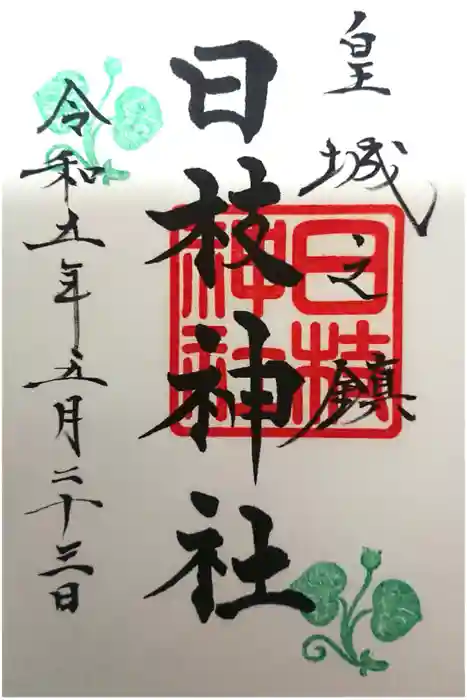 皇城之鎮
日枝神社
日枝神社
令和五年五月二十三日